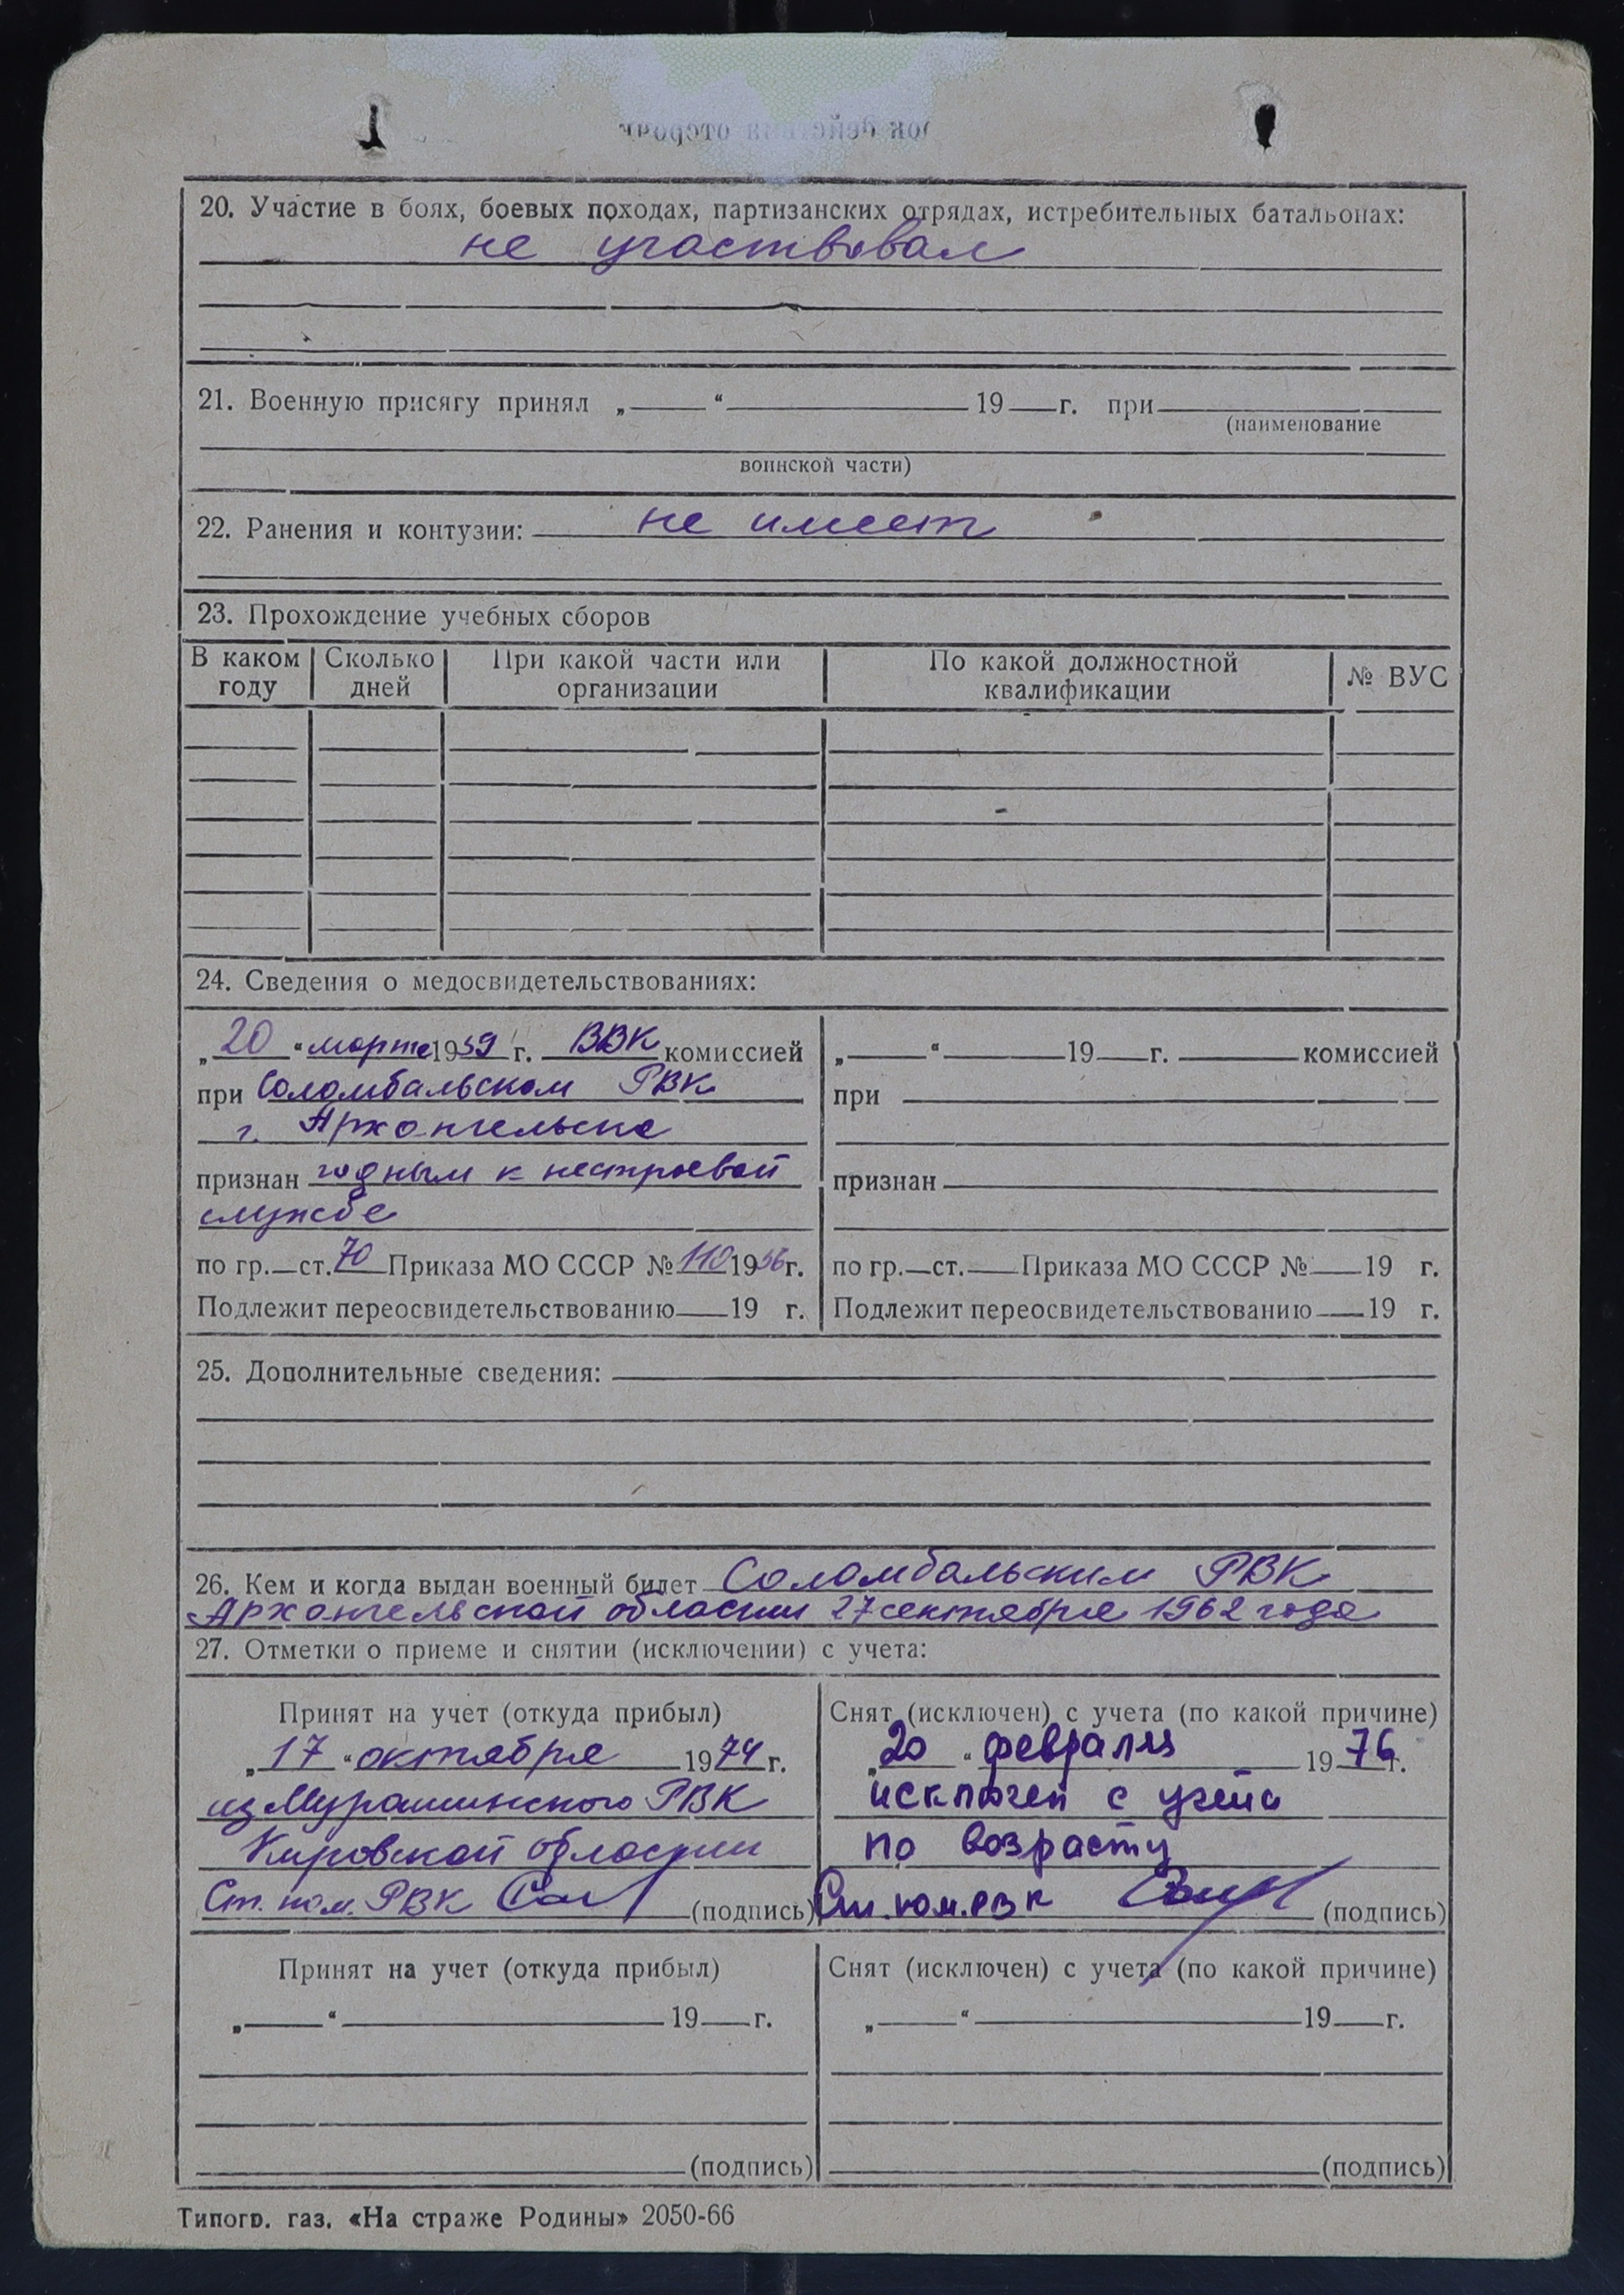 20. Участие в боях, боевых походах, партизанских отрядах, истребительных батальонах:
не участвовал
21. Военную присягу принял „ “ 19 г. при
(наименование
воинской части)
22. Ранения и контузии: не имеет
23. Прохождение учебных сборов
В каком году | Сколько дней | При какой части или организации | По какой должностной квалификации | № ВУС
24. Сведения о медосвидетельствованиях:
„20“ марта 1959 г. ВВК комиссией
при Соломбальском РВК
г. Архангельска
признан годным к нестроевой
службе
по гр. ст. 70 Приказа МО СССР № 110 1956 г.
Подлежит переосвидетельствованию 19 г.
„ “ 19 г. комиссией
при
признан
по гр. ст. Приказа МО СССР № 19 г.
Подлежит переосвидетельствованию 19 г.
25. Дополнительные сведения:
26. Кем и когда выдан военный билет Соломбальским РВК
Архангельской области 27 сентября 1962 года
27. Отметки о приеме и снятии (исключении) с учета:
Принят на учет (откуда прибыл)
„17“ октября 1974 г.
из Мурашинского РВК
Кировской области
Ст. пом. РВК (подпись)
Снят (исключен) с учета (по какой причине)
„20“ февраля 1976 г.
исключен с учета
по возрасту
Ст. пом. РВК (подпись)
Принят на учет (откуда прибыл)
„ “ 19 г.
(подпись)
Снят (исключен) с учета (по какой причине)
„ “ 19 г.
(подпись)
Типогр. газ. «На страже Родины» 2050-66